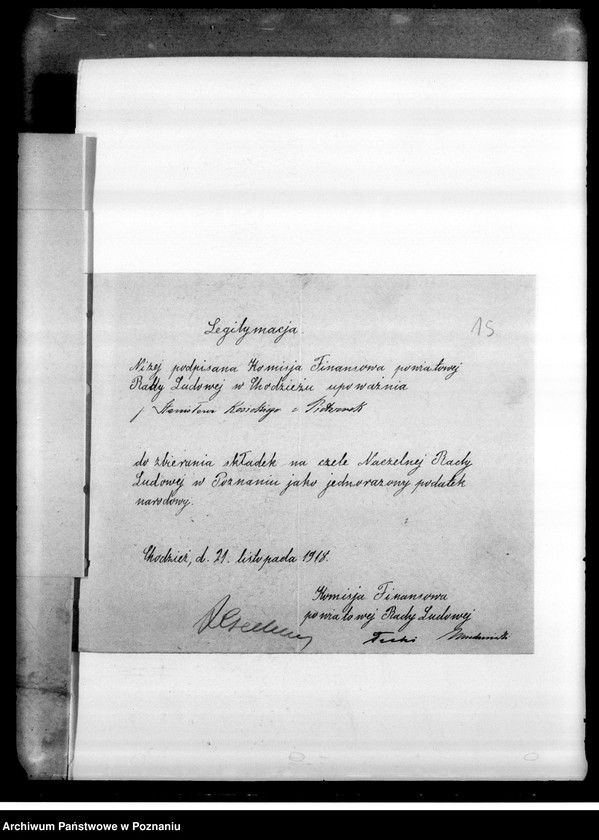 15
Legitymacja
Niżej podpisana Komisja Finansowa powiatowej
Rady Ludowej w Chodzieżu upoważnia
p Stanisława Kosickiego z
do zbierania składek na cele Naczelnej Rady
Ludowej w Poznaniu jako jednorazowy podatek
narodowy.
Chodzież, d. 21. listopada 1918.
Komisja Finansowa
powiatowej Rady Ludowej
Archiwum Państwowe w Poznaniu